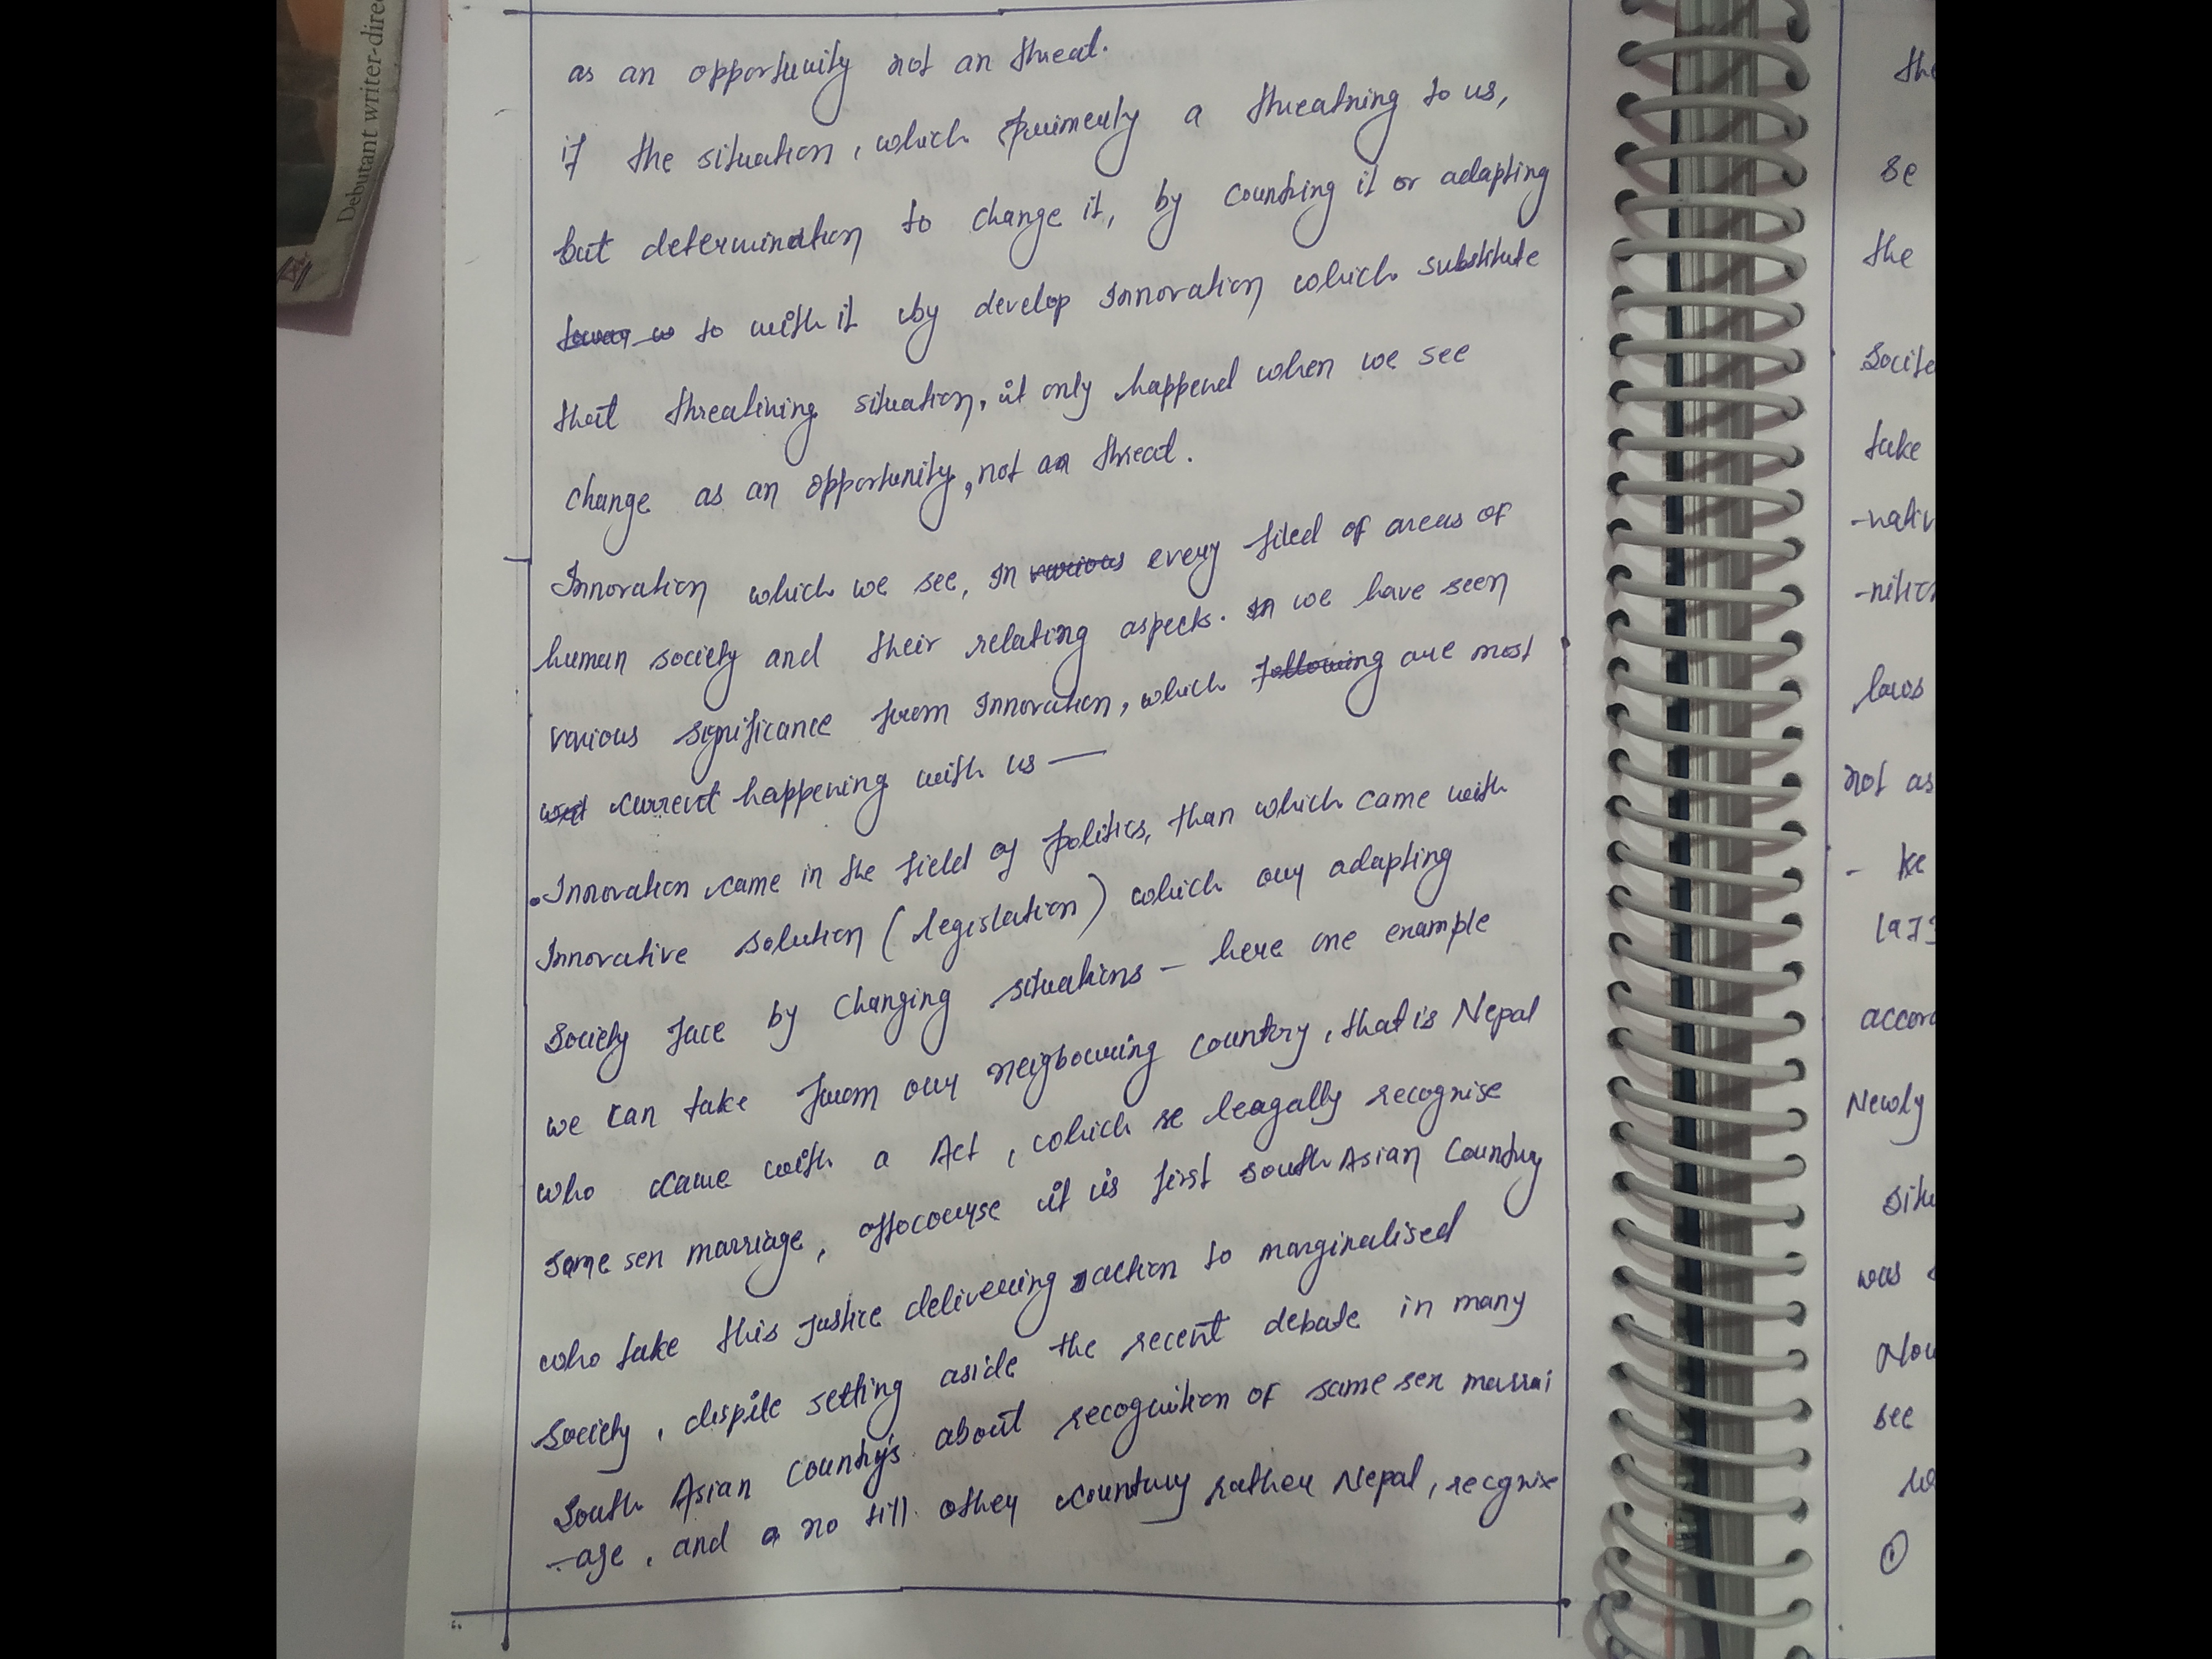 Debutant writer-dire
as an opportunity not an threat.
if the situation, which primerly a threatning to us,
but determination to change it, by countring it or adapting
to with it by develop Innovation which substitute
that threatining situation, it only happend when we see
change as an opportunity, not an threat.
Innovation which we see, in various every filed of areas of
human society and their relating aspects. In we have seen
various significance from Innovation, which following are most
current happening with us —
• Innovation came in the field of politics, than which came with
Innovative solution (legislation) which our adapting
society face by changing situations – here one example
we can take from our neigbouring country, that is Nepal
who came with a Act, which re leagally recognise
same sex marriage, offocourse it is first south Asian Country
who take this justice delivering action to marginalised
society, despite setting aside the recent debate in many
South Asian Country's about recognition of same sex marrai
-age, and a no till other country rather Nepal, recgnise
the
se
the
Socite
take
-nativ
-nition
laws
not as
- ke
197
accord
Newly
situ
was
Now
see
①